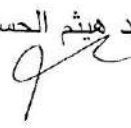 د هيثم الحس